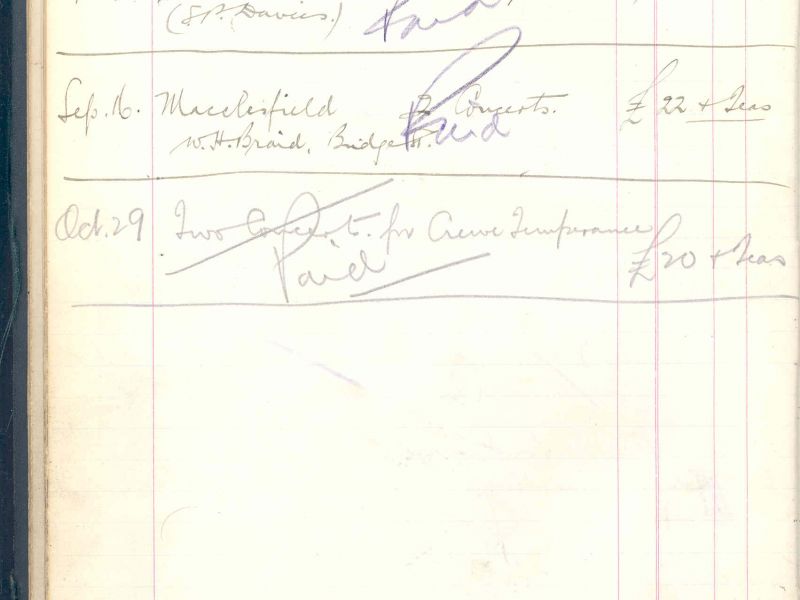 (S.P. Davies.) Paid
Sep. 16. Macclesfield 2 Concerts. £22 + Teas
W. H. Braid, Bridge St. Paid
Oct. 29 Two Concerts for Crewe Temperance
Paid £20 + Teas